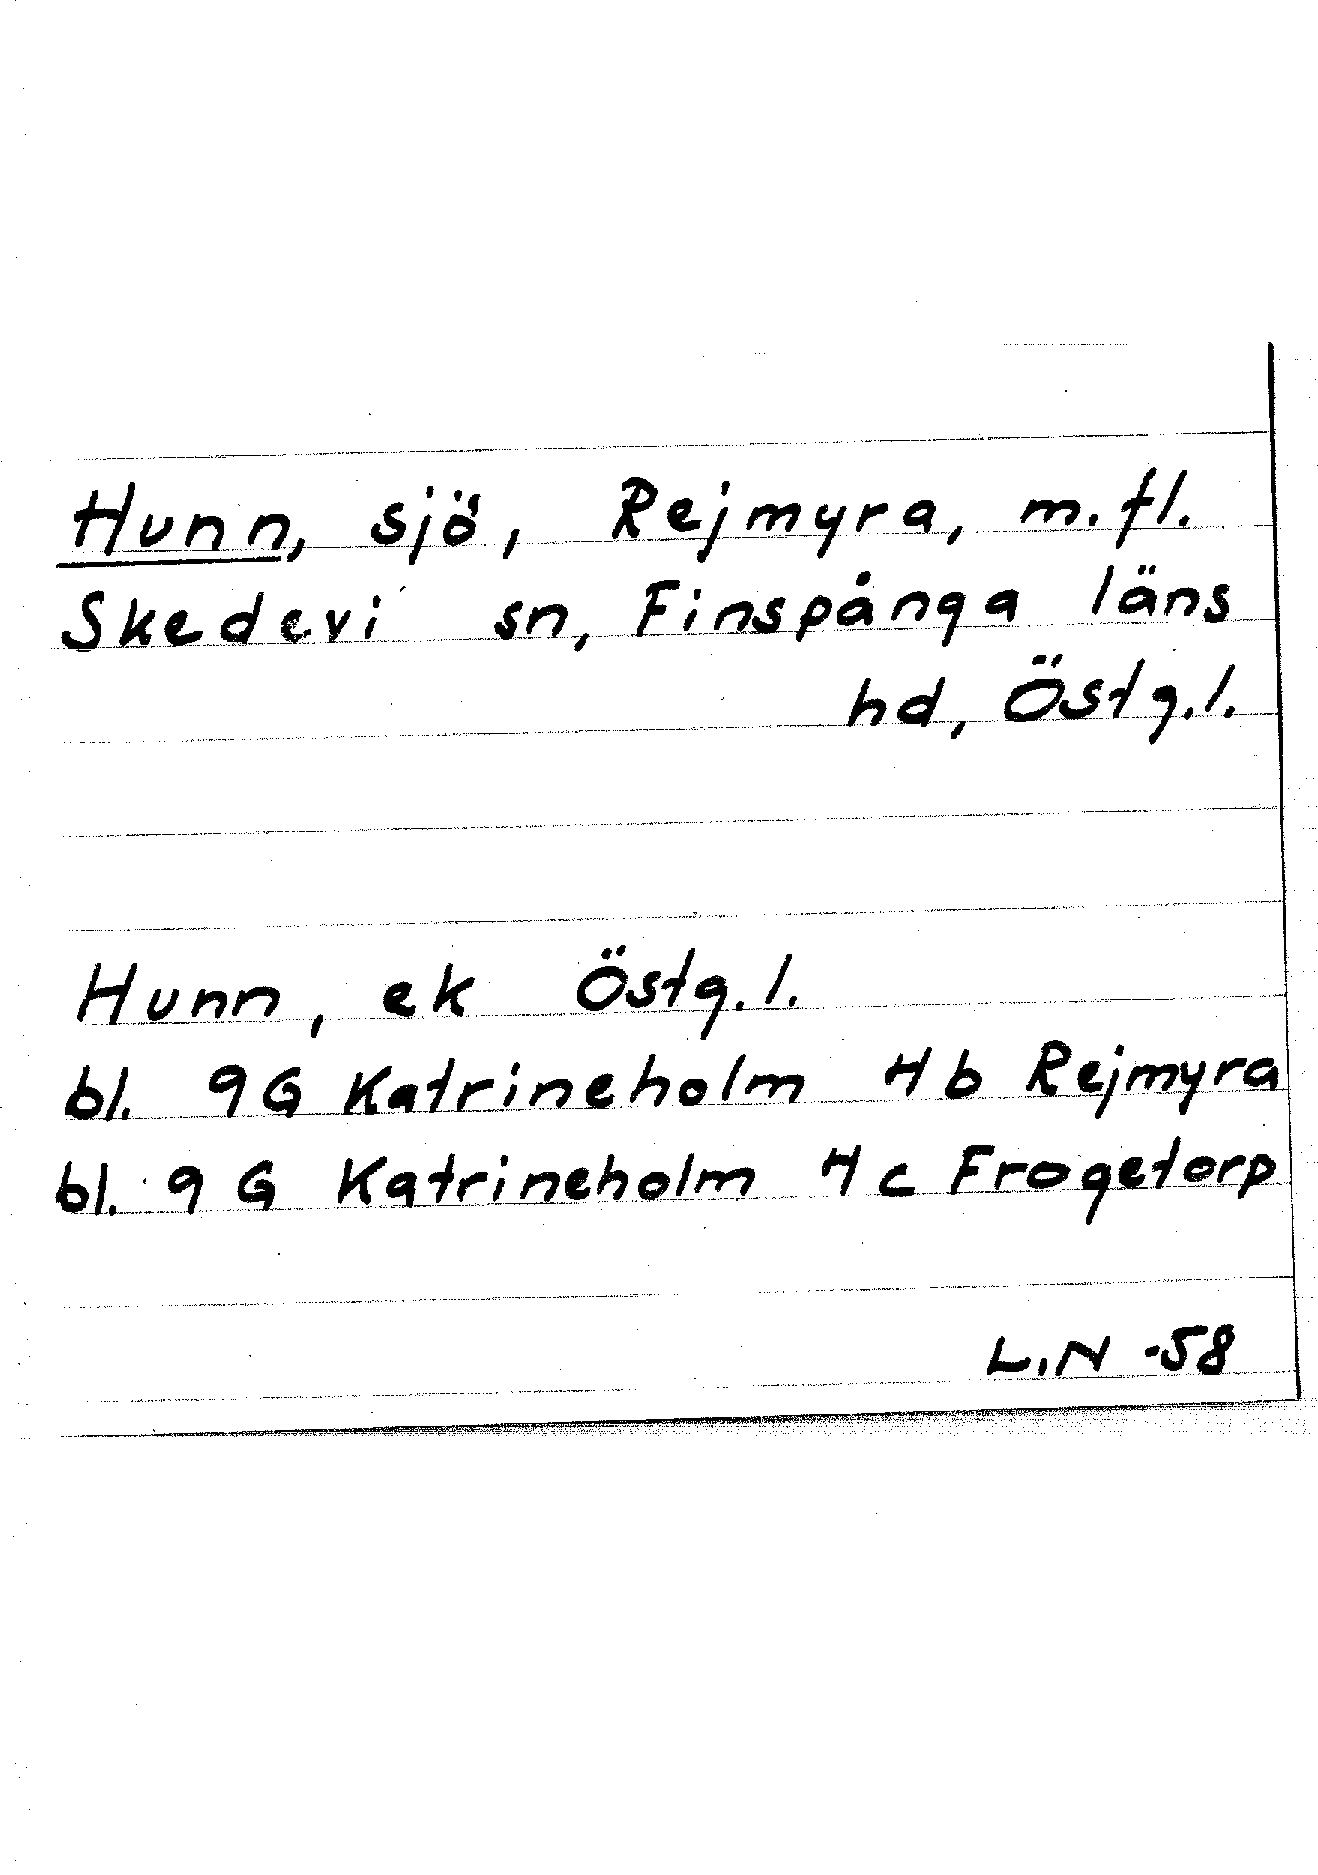 Hunn, sjö, Rejmyra, m.fl.
Skedevi sn, Finspånga läns
hd, Östg.l.
Hunn, ek Östg.l.
bl. 9G Katrineholm 4b Rejmyra
bl. 9G Katrineholm 4c Frogetorp
L.N -58